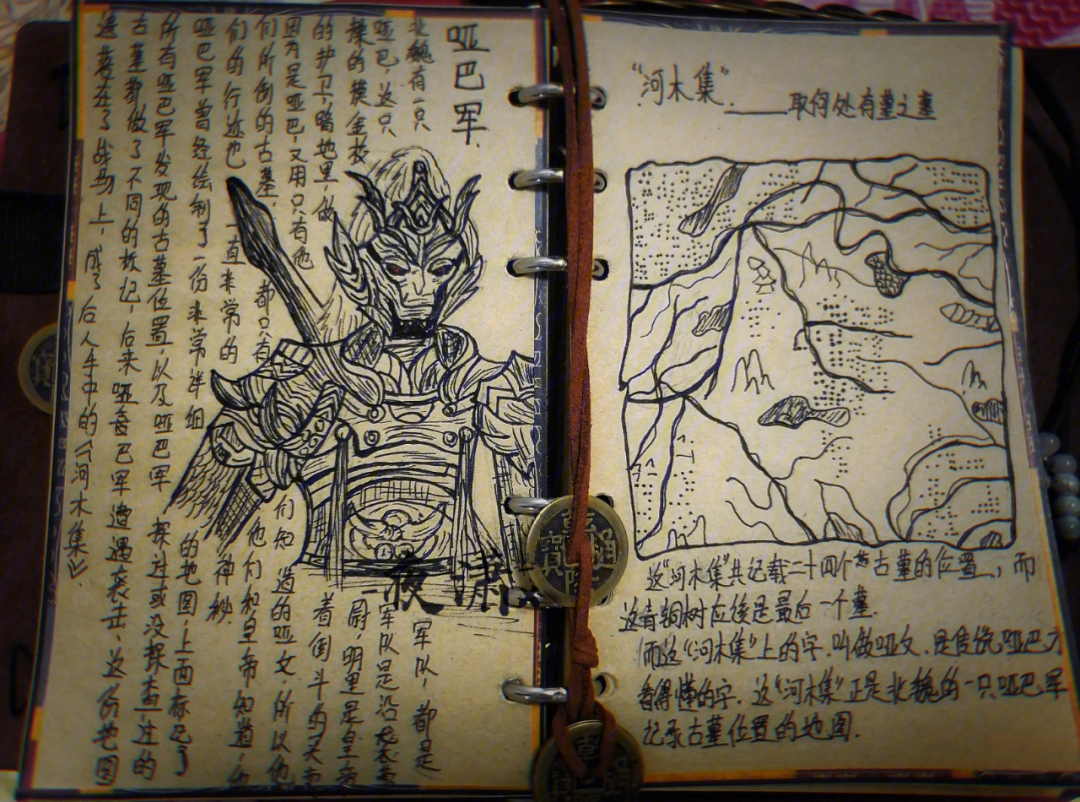 哑巴军.
北魏有一只军队，都是
哑巴，这只军队是沿袭曹
操的摸金校尉，明里是皇帝
的护卫，暗地里，做着倒斗的买卖
因为是哑巴，又用只有他们知道的哑文，所以他
们所倒的古墓，都只有他们和皇帝知道，他
们的行迹也一直非常的神秘.
哑巴军曾经绘制了一份非常详细的地图，上面标记了
所有哑巴军发现的古墓位置，以及哑巴军探过或没探查过的
古墓都做了不同的标记，后来哑巴军遭遇袭击，这份地图
遗落在了战马上，成了后人手中的《河木集》.
夜潇
“河木集”
——取何处有墓之墓
这“河木集”共记载二十四个古墓的位置，而
这青铜树应该是最后一个墓.
而这“河木集”上的字，叫做哑文，是传说哑巴才
看得懂的字. 这“河木集”正是北魏的一只哑巴军
记录古墓位置的地图.